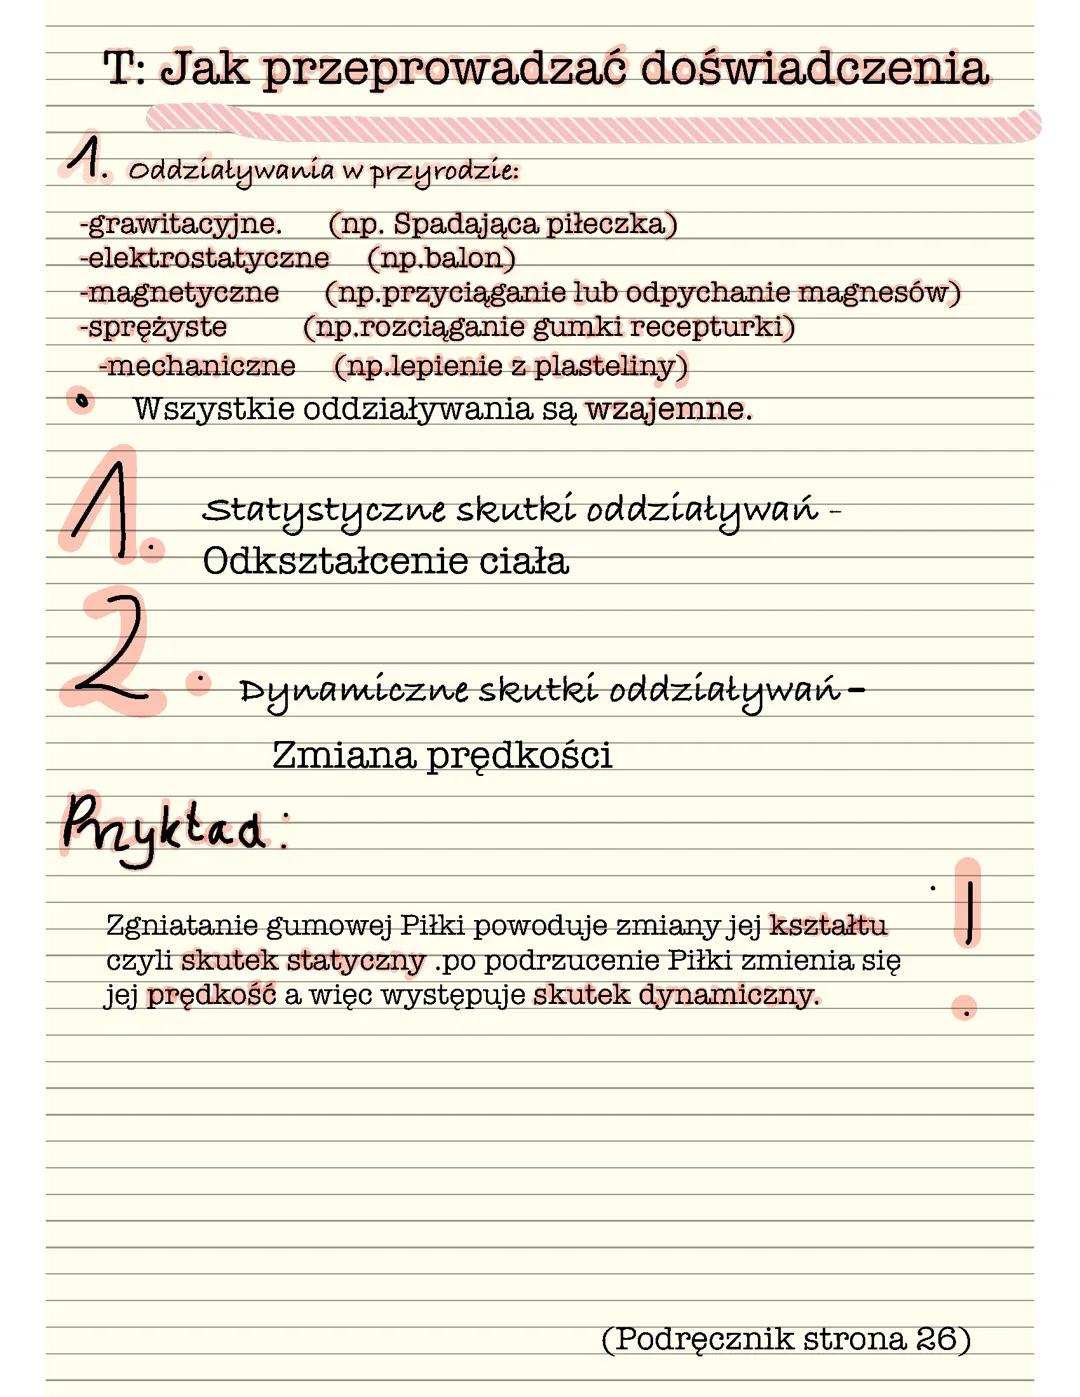 T: Jak przeprowadzać doświadczenia
1. Oddziaływania w przyrodzie:
-grawitacyjne. (np. Spadająca piłeczka)
-elektrostatyczne (np.balon)
-magnetyczne (np.przyciąganie lub odpychanie magnesów)
-sprężyste (np.rozciąganie gumki recepturki)
-mechaniczne (np.lepienie z plasteliny)
• Wszystkie oddziaływania są wzajemne.
1. Statystyczne skutki oddziaływań -
Odkształcenie ciała
2. Dynamiczne skutki oddziaływań-
Zmiana prędkości
Przykład:
Zgniatanie gumowej Piłki powoduje zmiany jej kształtu
czyli skutek statyczny .po podrzucenie Piłki zmienia się
jej prędkość a więc występuje skutek dynamiczny.
!
(Podręcznik strona 26)